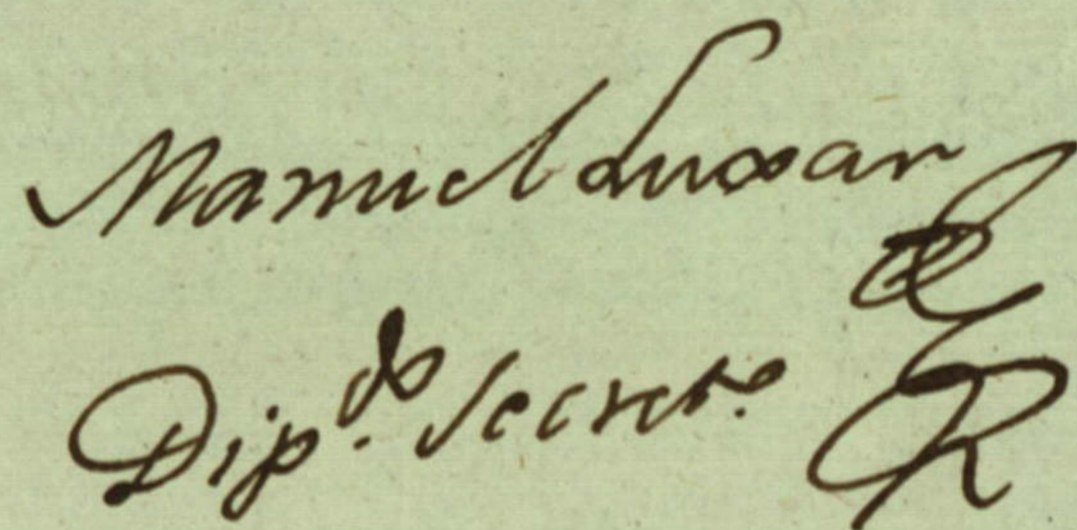 Manuel Luxar
Dip.do Secret.o